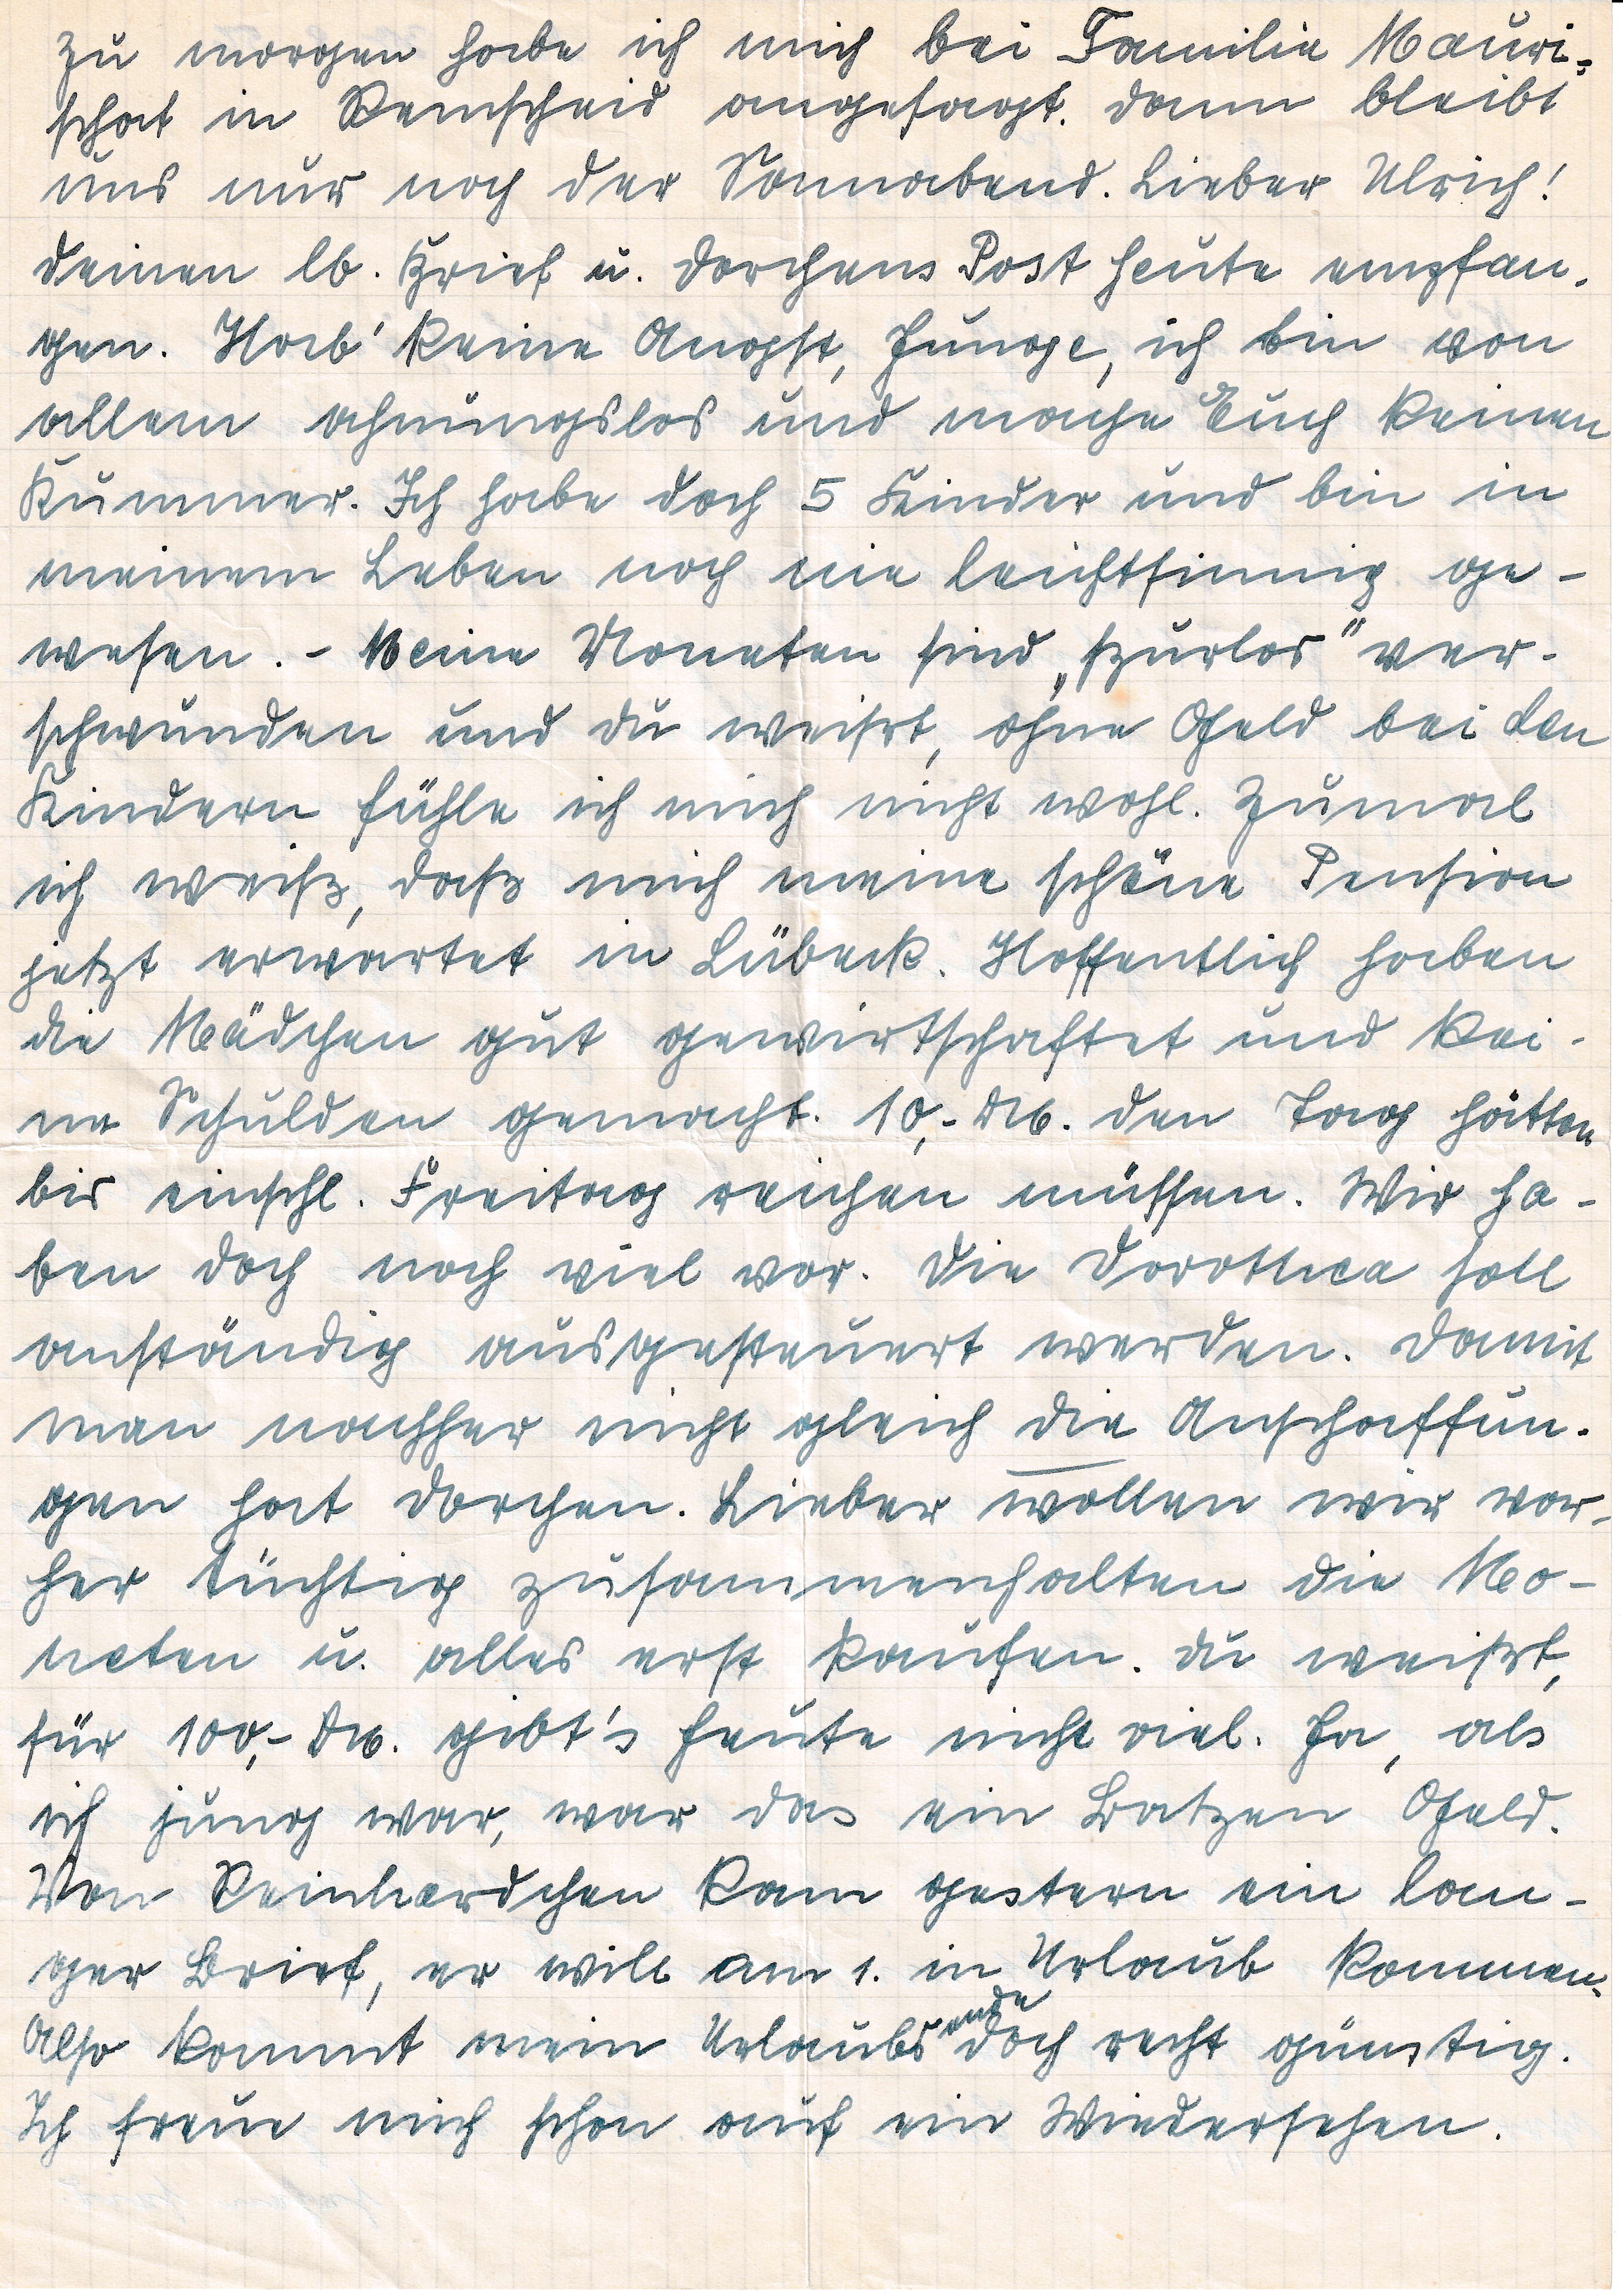 Zu morgen habe ich mich bei Familie Mauri-
schat in Remscheid angesagt. Dann bleibt
uns nur noch der Sonnabend. Lieber Ulrich!
Deinen lb. Brief u. Dorchens Post heute empfan-
gen. Hab' keine Angst, Junge, ich bin von
allem ahnungslos und mache Euch keinen
Kummer. Ich habe doch 5 Kinder und bin in
meinem Leben noch nie leichtsinnig ge-
wesen. - Meine Moneten sind „spurlos" ver-
schwunden und Du weißt, ohne Geld bei den
Kindern fühle ich mich nicht wohl. Zumal
ich weiß, daß mich meine schöne Pension
jetzt erwartet in Lübeck. Hoffentlich haben
die Mädchen gut gewirtschaftet und kei-
ne Schulden gemacht. 10,- DM. den Tag hätten
bis einschl. Freitag reichen müssen. Wir ha-
ben doch noch viel vor. Die Dorothea soll
anständig ausgesteuert werden. Damit
man nachher nicht gleich die Anschaffun-
gen hat Dorchen. Lieber wollen wir vor-
her tüchtig zusammenhalten die Mo-
neten u. alles erst kaufen. Du weißt,
für 100,- DM. gibt's heute nicht viel. Ja, als
ich jung war, war das ein Batzen Geld.
Von Reinhardchen kam gestern ein lan-
ger Brief, er will am 1. in Urlaub kommen.
Also kommt mein Urlaubsende doch recht günstig.
Ich freue mich schon auf ein Wiedersehen.